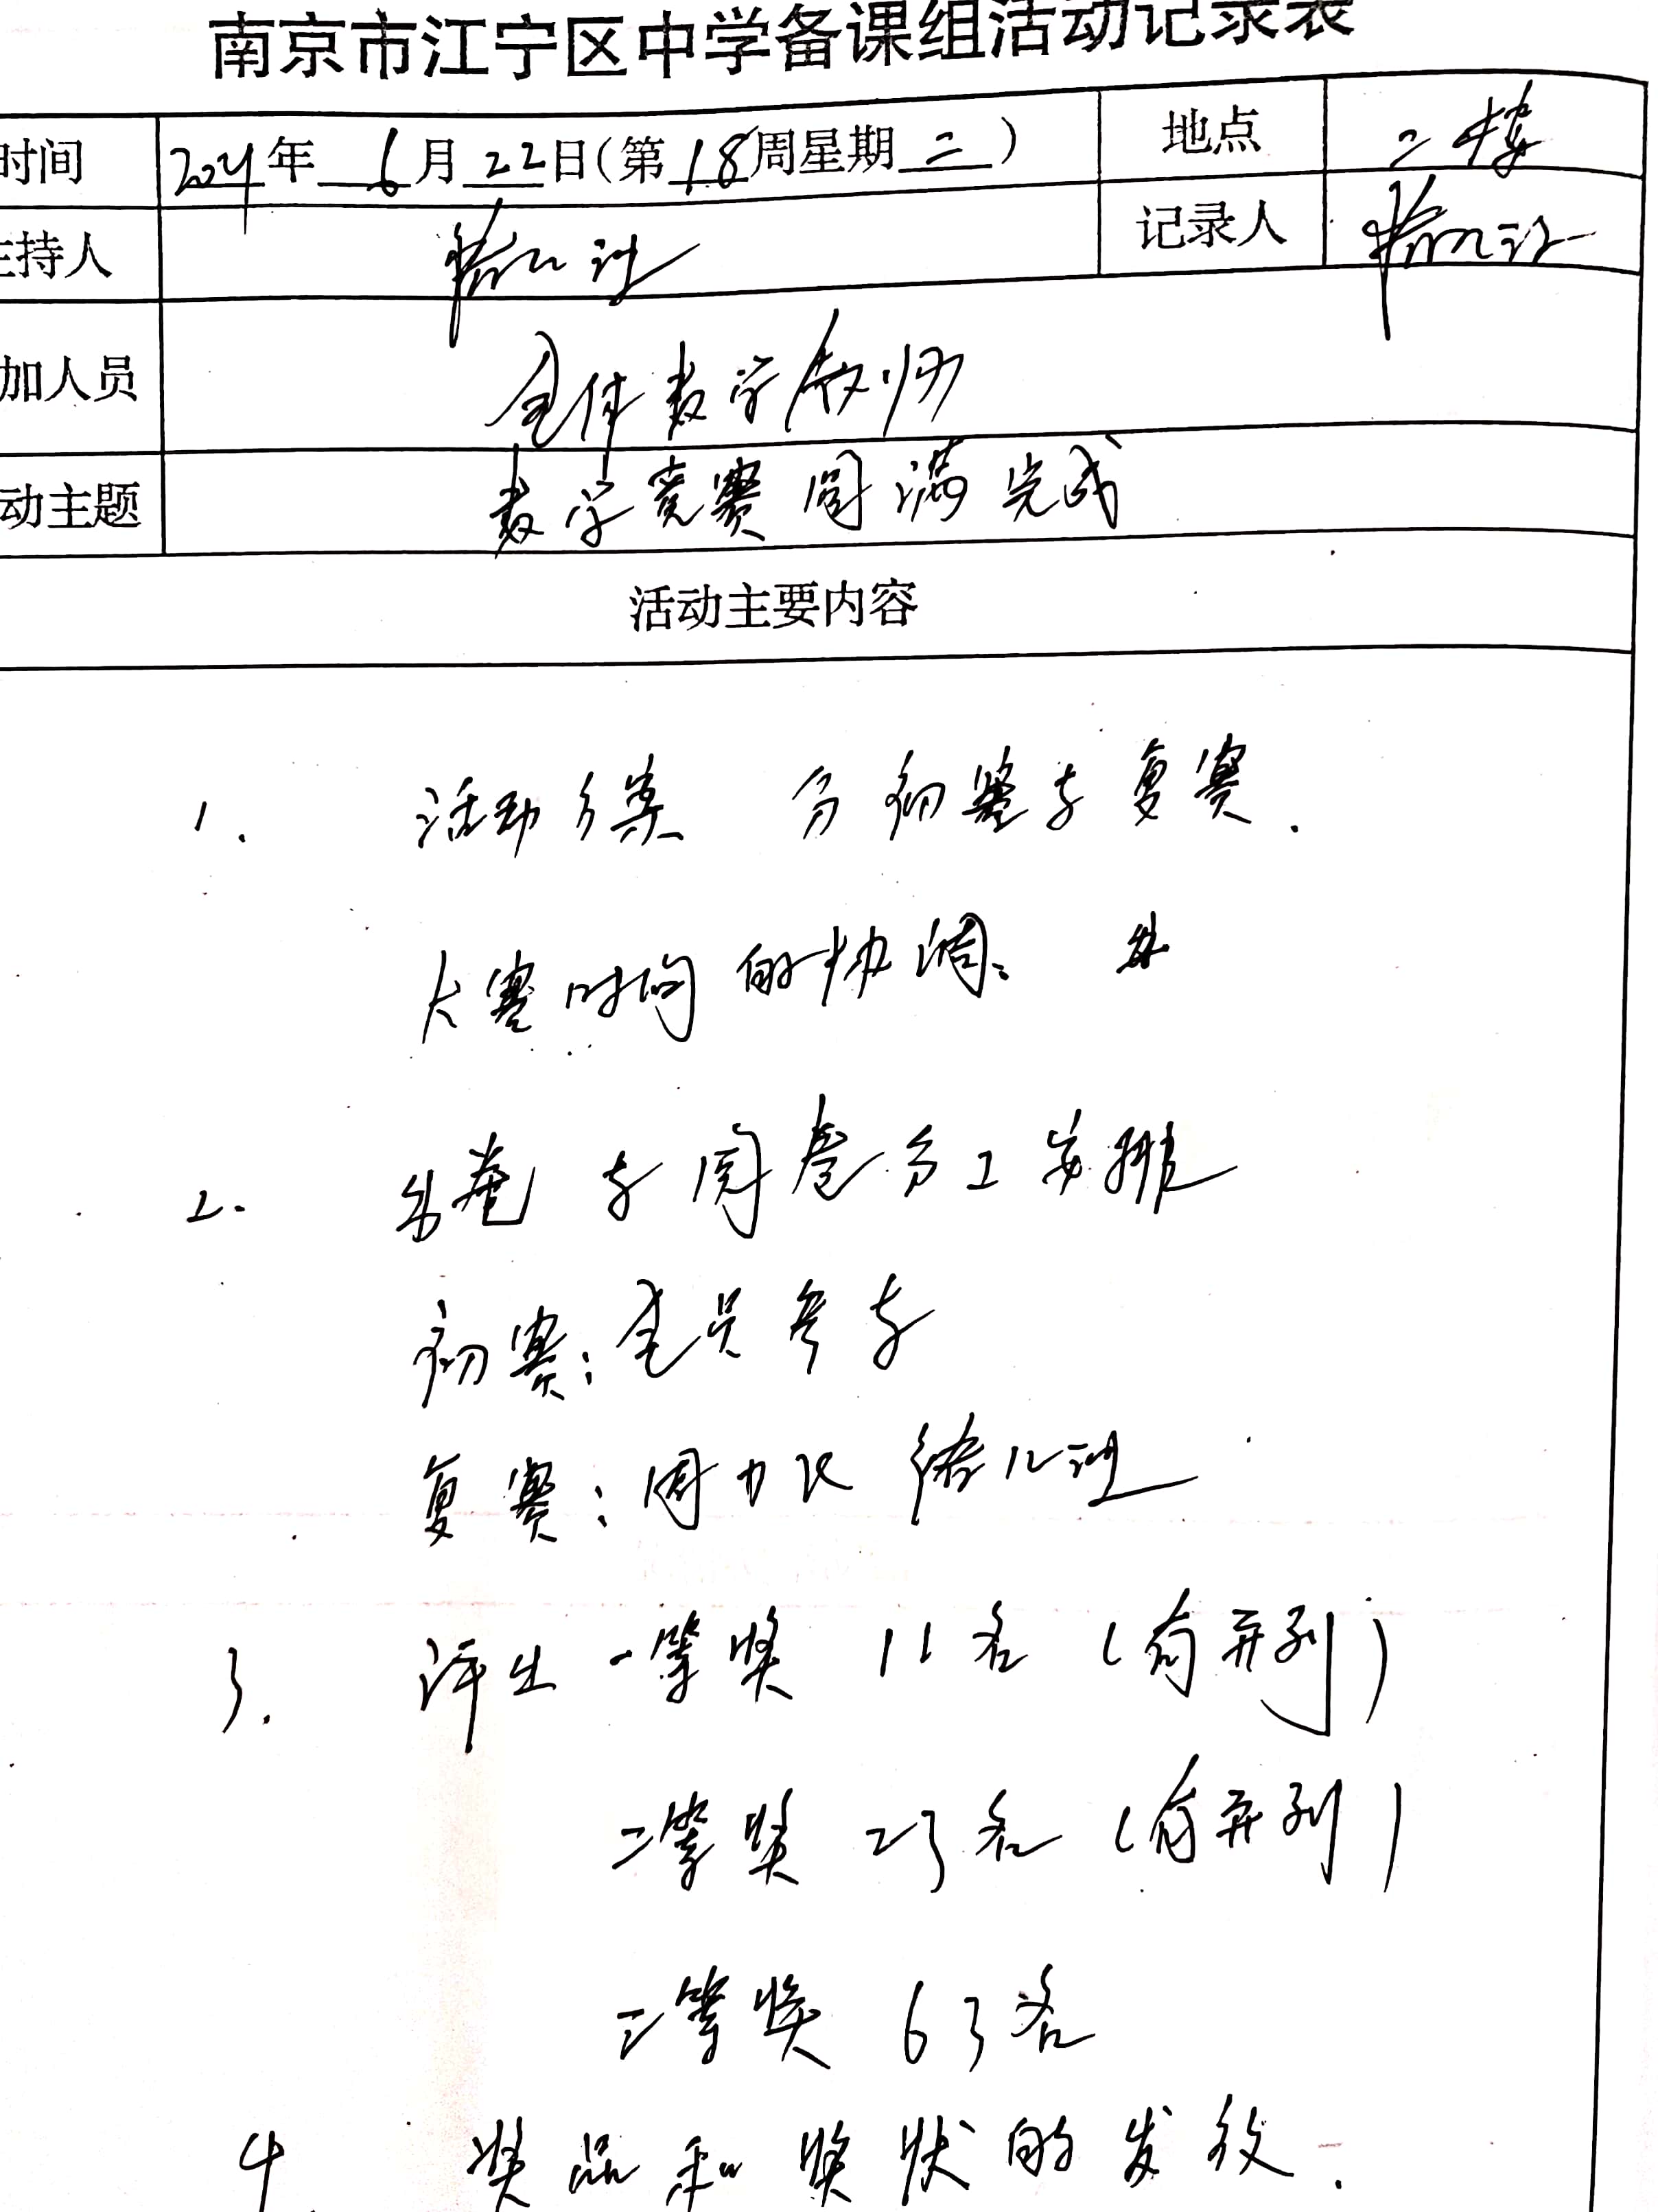 南京市江宁区中学备课组活动记录表
时间 2021年 6月 22日(第18周星期二) 地点 二楼
主持人 记录人
加人员 全体数学教师
动主题 数学竞赛圆满完成
活动主要内容
1. 活动方案 分初赛与复赛.
大赛时间的协调、
2. 出卷与阅卷分工安排
初赛:全员参与
复赛:周
3. 评出一等奖 11名(有并列)
二等奖 23名(有并列)
三等奖 63名
4 奖品和奖状的发放.